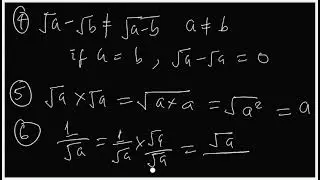 ④ √a - √b ≠ √a-b a ≠ b
if a = b , √a - √a = 0
⑤ √a × √a = √a×a = √a² = a
⑥ 1/√a = 1/√a × √a/√a = √a/